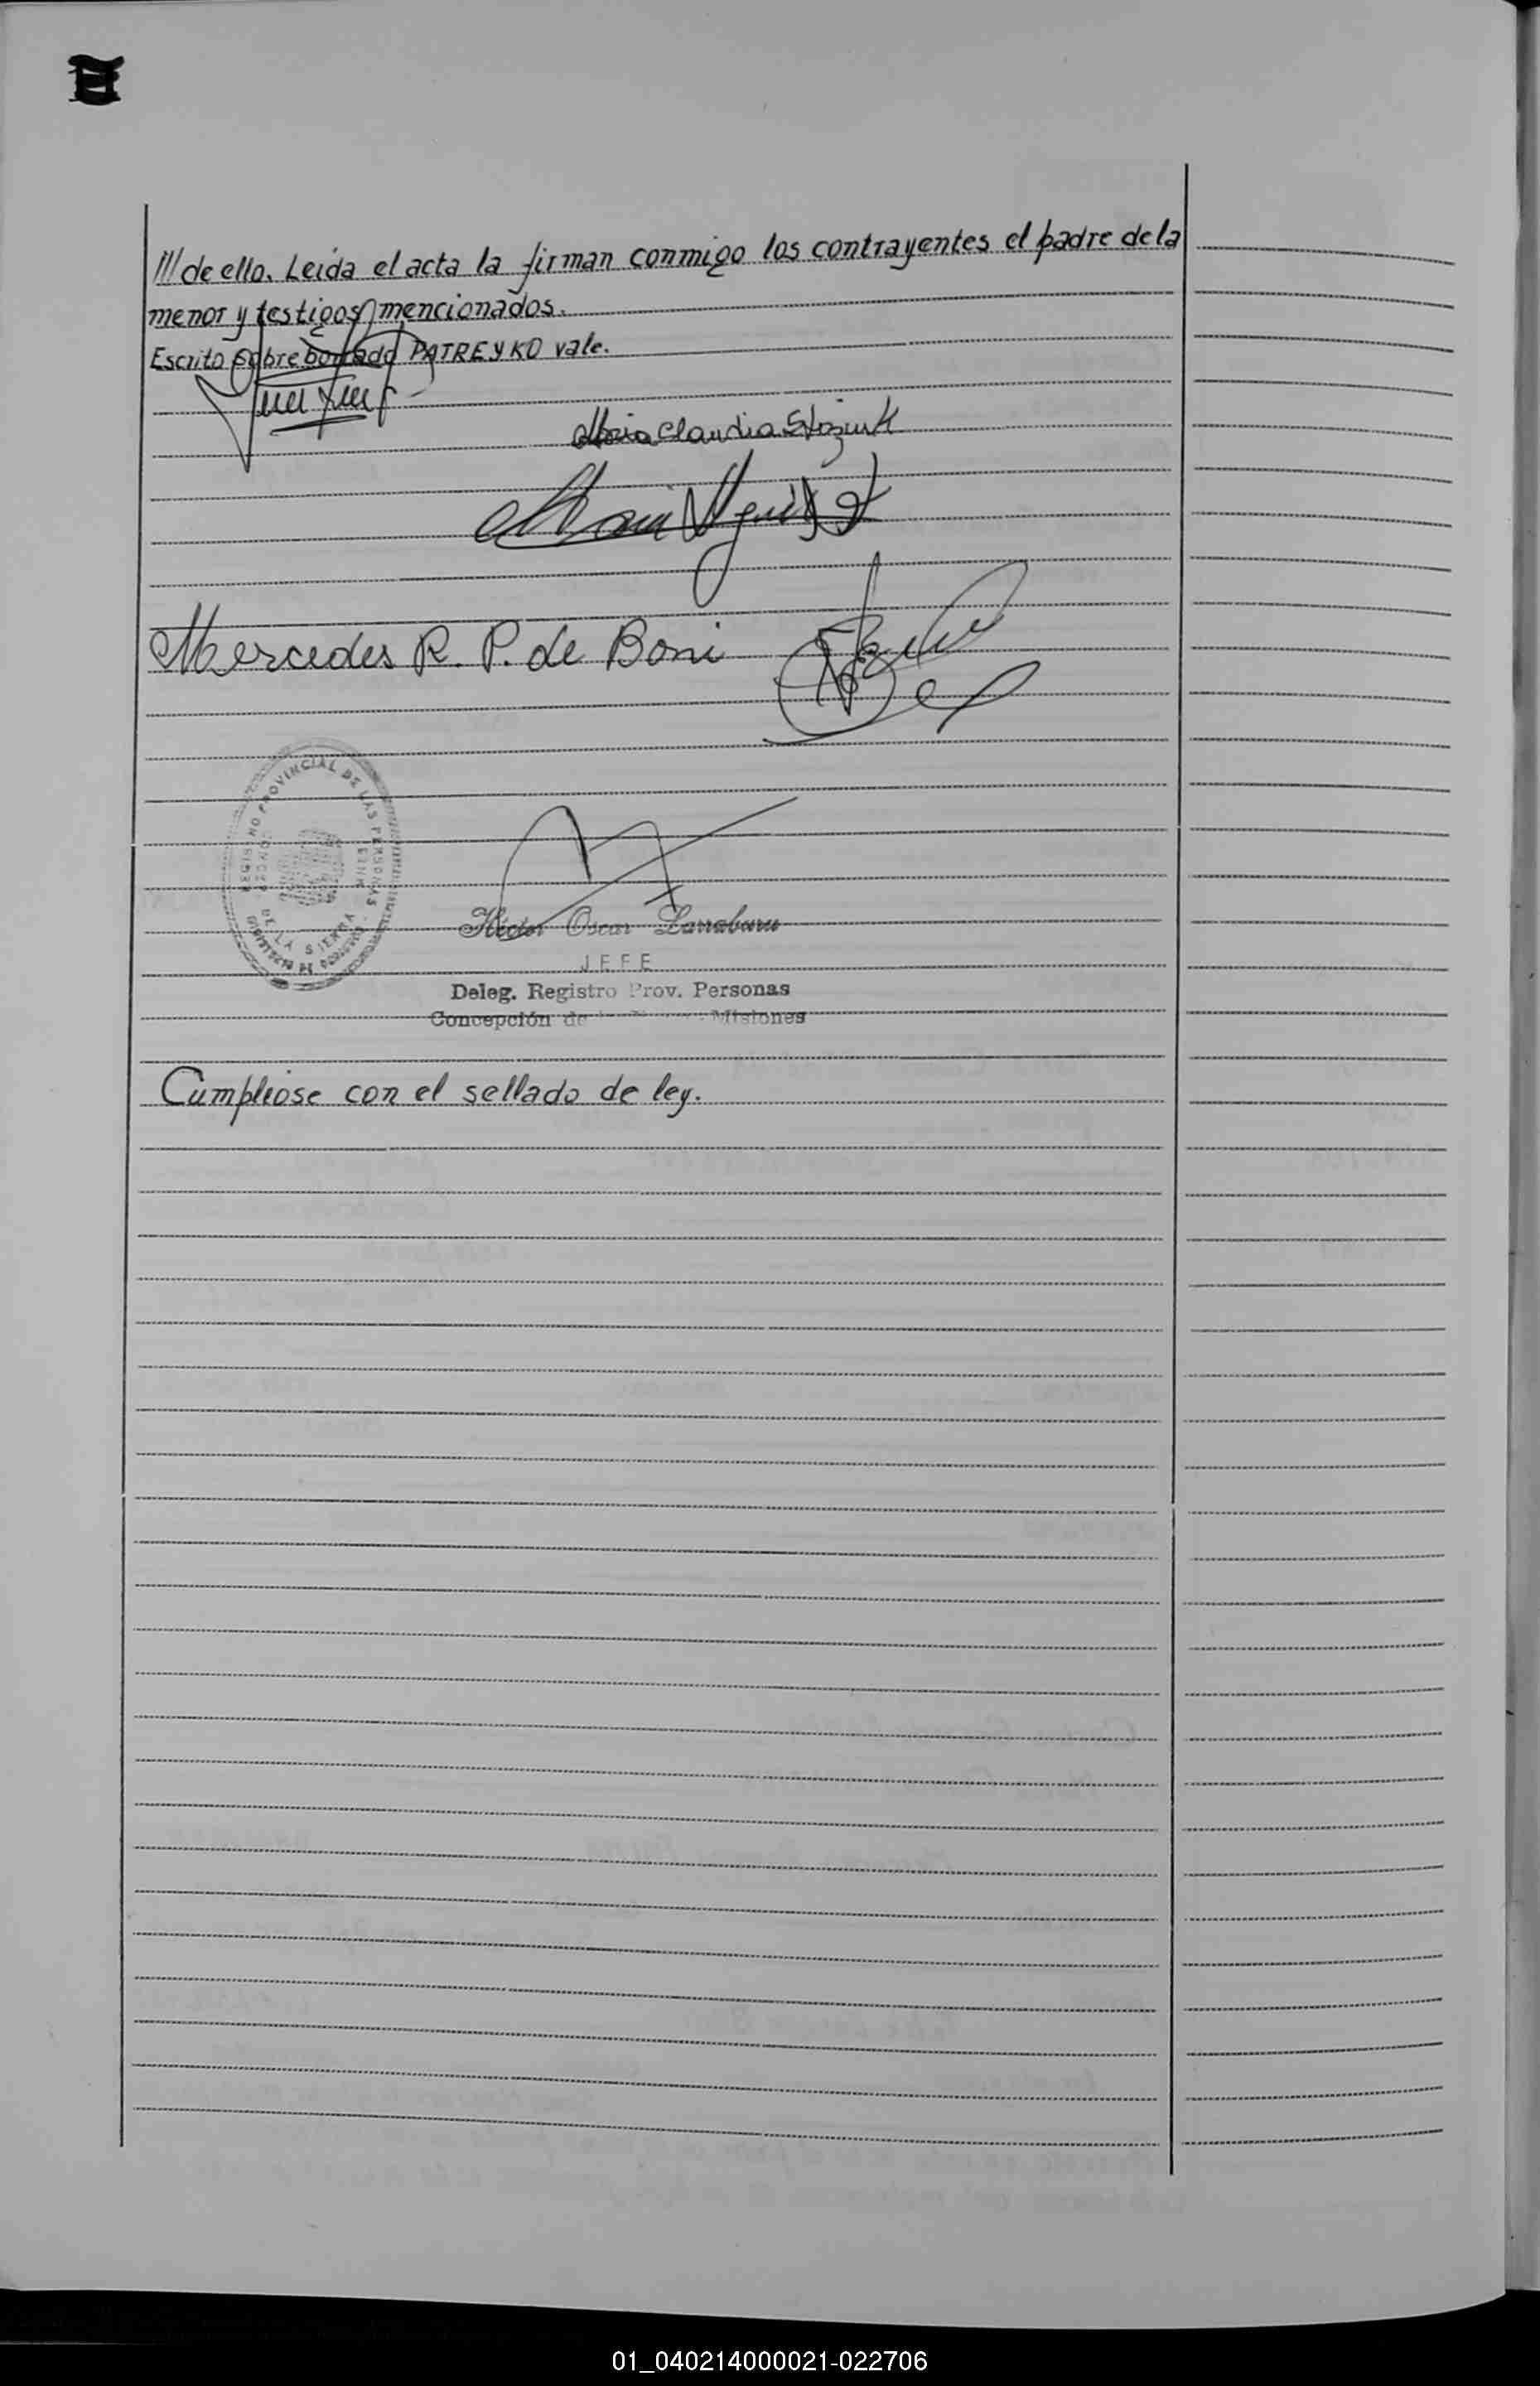 /// de ello. Leida el acta la firman conmigo los contrayentes el padre de la
menor y testigos mencionados.
Escrito sobre borrado PATREYKO vale.
Maria Claudia
Mercedes R. P. de Boni
REGISTRO PROVINCIAL DE LAS PERSONAS
DE LA SIERRA
Hector Oscar Larraburu
JEFE
Deleg. Registro Prov. Personas
Concepción de Misiones
Cumpliose con el sellado de ley.
01_040214000021-022706